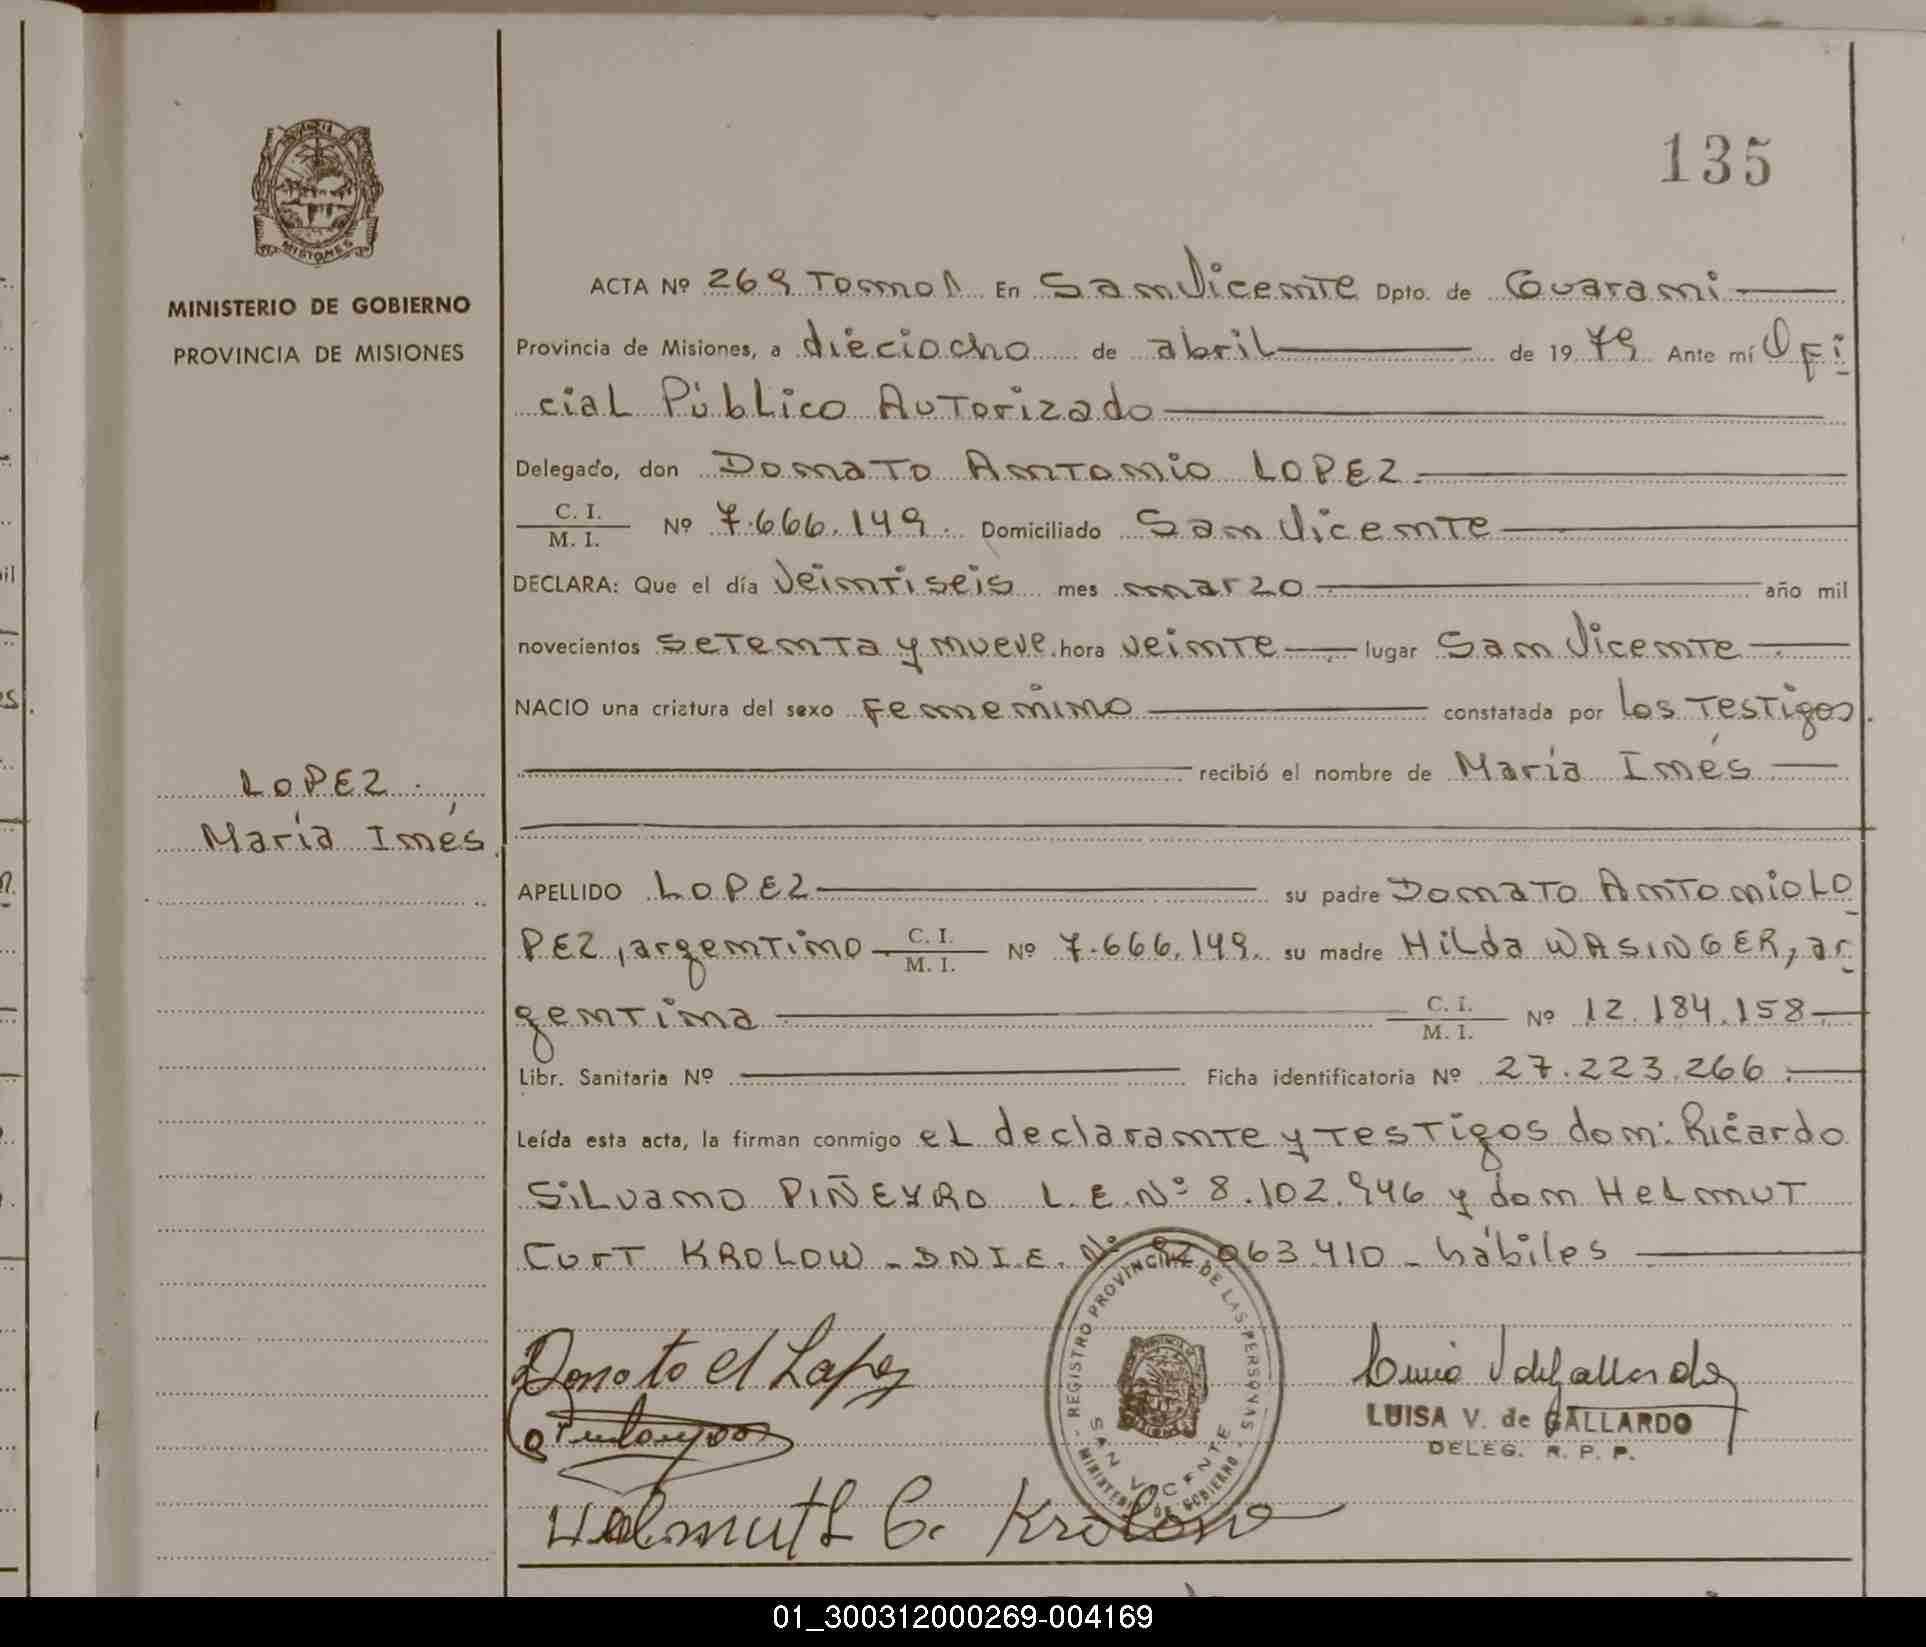 135
MISIONES
MINISTERIO DE GOBIERNO
PROVINCIA DE MISIONES
LOPEZ
María Inés
ACTA Nº 269 Tomo 1 En San Vicente Dpto. de Guaraní
Provincia de Misiones, a dieciocho de abril de 1979 Ante mí Ofi
cial Público Autorizado
Delegado, don Donato Antonio LOPEZ
C. I.
M. I. Nº 7.666.149. Domiciliado San Vicente
DECLARA: Que el día veintiseis mes marzo año mil
novecientos setenta y nueve hora veinte lugar San Vicente
NACIO una criatura del sexo Femenino constatada por los testigos.
recibió el nombre de María Inés
APELLIDO LOPEZ su padre Donato Antonio LO
PEZ, argentino C. I. M. I. Nº 7.666.149. su madre Hilda WASINGER, ar
gentina C. I. M. I. Nº 12.184.158
Libr. Sanitaria Nº Ficha identificatoria Nº 27.223.266.
Leída esta acta, la firman conmigo el declarante y testigos don: Ricardo
Silvano PIÑEYRO L.E.Nº 8.102.946 y don Helmut
Curt KROLOW - DNI.E. Nº 063.410 - hábiles
REGISTRO PROVINCIAL DE LAS PERSONAS
MINISTERIO DE GOBIERNO
SAN VICENTE
Donato A Lopez
LUISA V. de GALLARDO
DELEG. R. P. P.
Helmuth C. Krolow
01_300312000269-004169